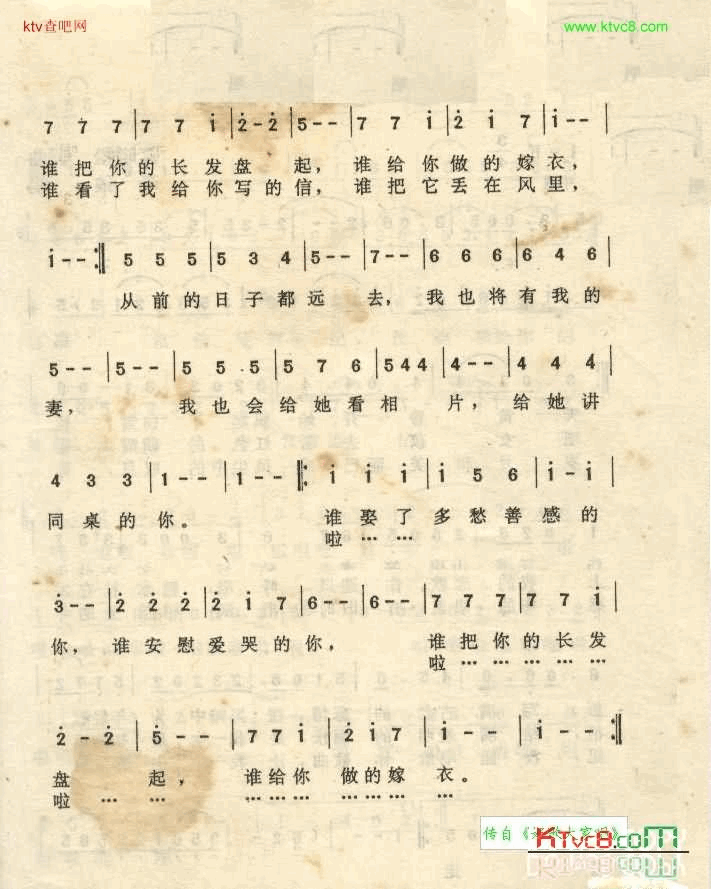 ktv查吧网
www.ktvc8.com
7 7 7 | 7 7 i̇ | 2̇-2̇ | 5-- | 7 7 i̇ | 2̇ i̇ 7 | i̇-- |
谁把你的长发盘 起，谁给你做的嫁衣，
谁看了我给你写的信，谁把它丢在风里，
i̇-- :‖ 5 5 5 | 5 3 4 | 5-- | 7-- | 6 6 6 | 6 4 6 |
从前的日子都远 去，我也将有我的
5-- | 5-- | 5 5 5 | 5 7 6 | 5 4 4 | 4-- | 4 4 4 |
妻， 我也会给她看相 片，给她讲
4 3 3 | 1-- | 1-- ‖: i̇ i̇ i̇ | i̇ 5 6 | i̇-i̇ |
同桌的你。 谁娶了多愁善感的
啦 … …
3̇-- | 2̇ 2̇ 2̇ | 2̇ i̇ 7 | 6-- | 6-- | 7 7 7 | 7 7 i̇ |
你，谁安慰爱哭的你， 谁把你的长发
啦 … … … …
2̇-2̇ | 5-- | 7 7 i̇ | 2̇ i̇ 7 | i̇-- | i̇-- :‖
盘 起，谁给你 做的嫁 衣。
啦 … … … … … … …
KTvc8.com